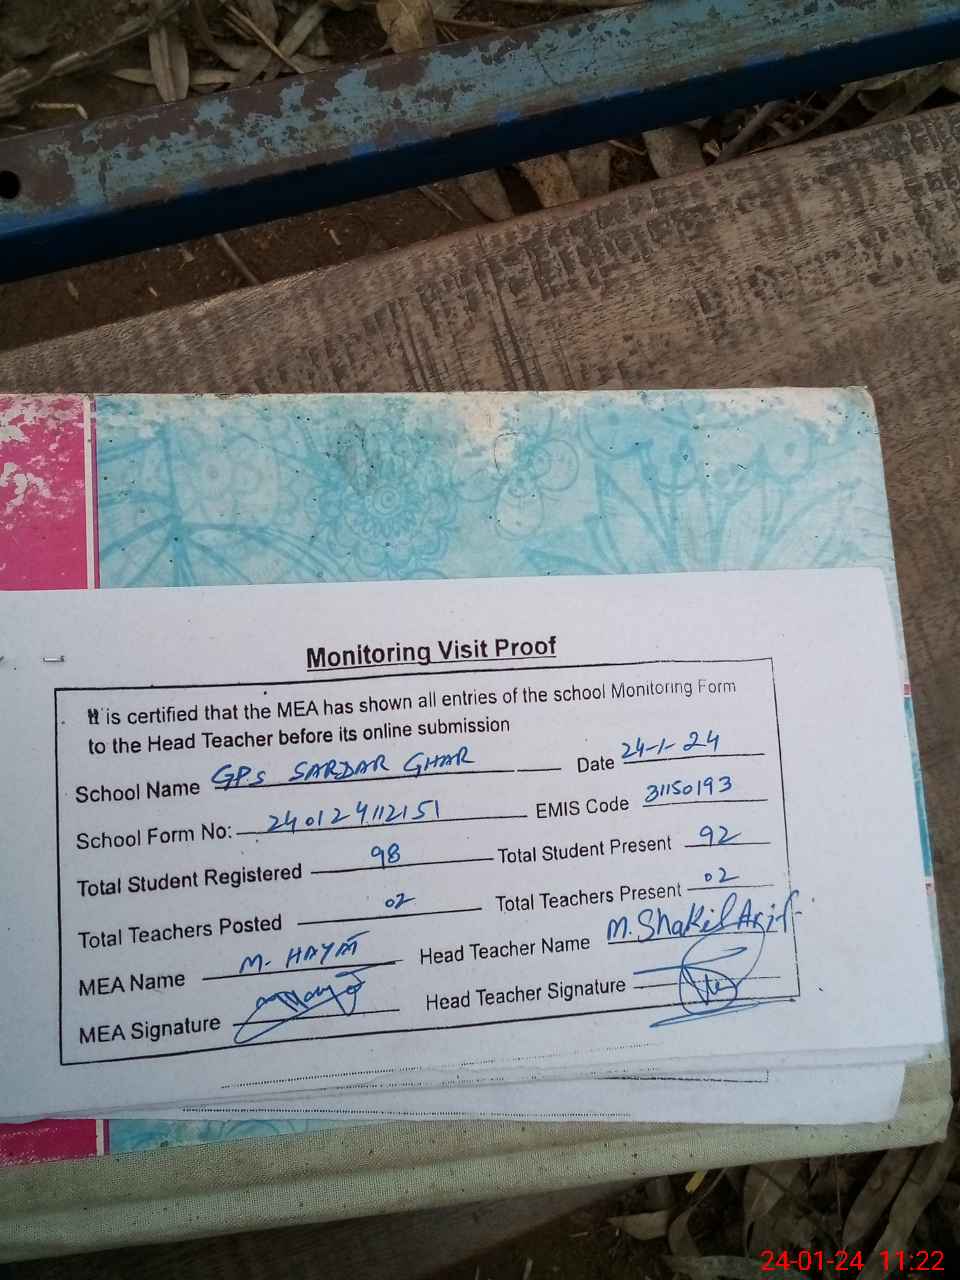 Monitoring Visit Proof
It is certified that the MEA has shown all entries of the school Monitoring Form
to the Head Teacher before its online submission
School Name GPS SARDAR GHAR Date 24-1-24
School Form No: 240124112151 EMIS Code 31150193
Total Student Registered 98 Total Student Present 92
Total Teachers Posted 02 Total Teachers Present 02
MEA Name M. HAYAT Head Teacher Name M. Shakil Arif
MEA Signature Head Teacher Signature
24-01-24 11:22